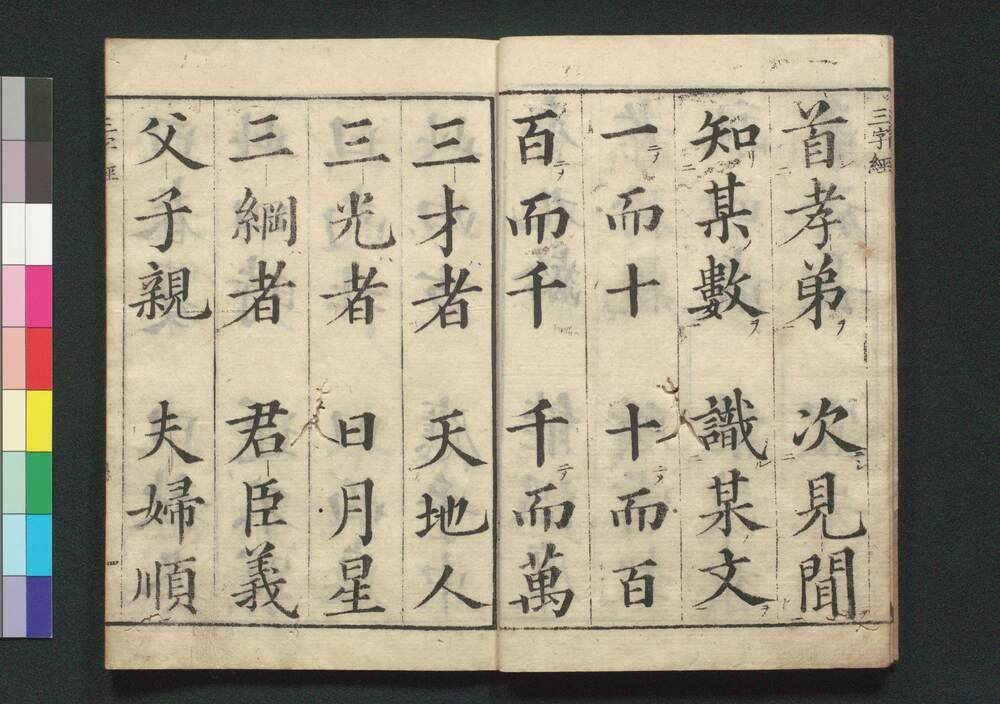 三字經
首孝弟 次見聞
知某數 識某文
一而十 十而百
百而千 千而萬
三才者 天地人
三光者 日月星
三綱者 君臣義
父子親 夫婦順